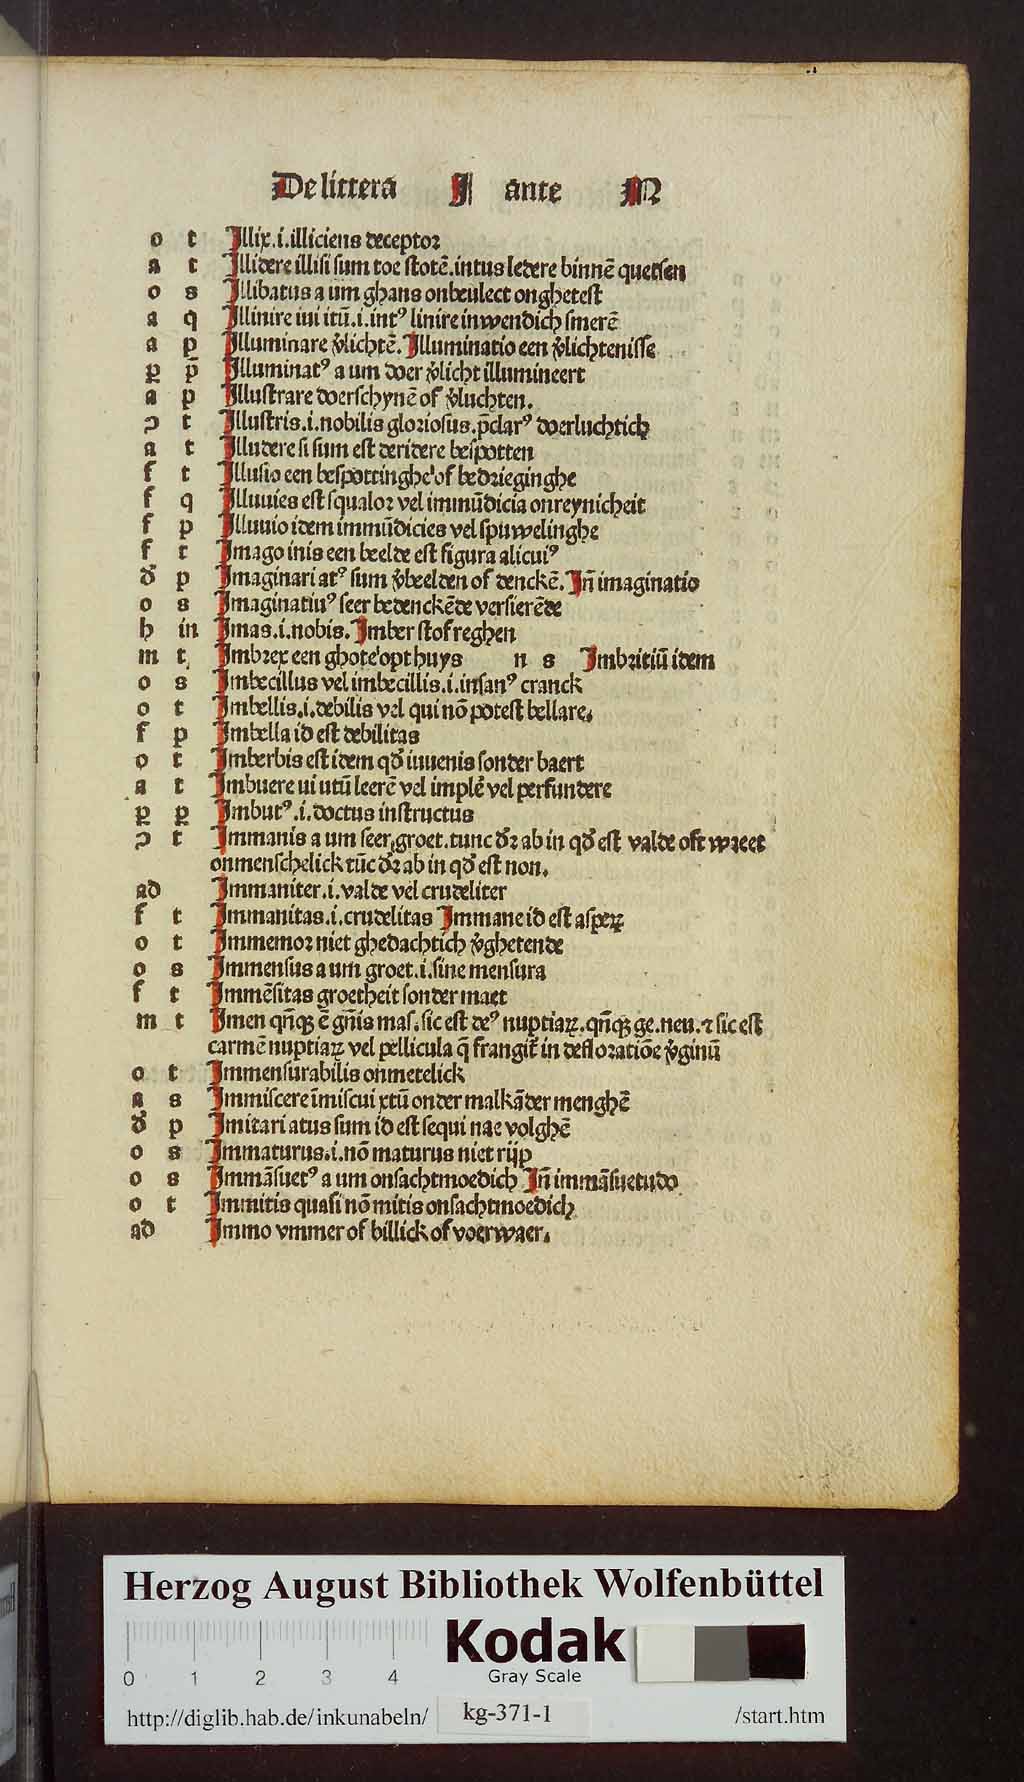 De littera I ante M
o t Illix.i.illiciens deceptor
a t Illidere illisi sum toe stotē.intus ledere binnē quetsen
o s Illibatus a um ghans onbeulect onghetest
a q Illinire iui itū.i.intꝰ linire inwendich smerē
a p Illuminare v̓lichtē. Illuminatio een v̓lichtenisse
p p̄ Illuminatꝰ a um doer v̓licht illumineert
a p Illustrare doerschynē of v̓luchten.
ↄ t Illustris.i.nobilis gloriosus.p̄clarꝰ doerluchtich
a t Illudere si sum est deridere bespotten
f t Illusio een bespottinghe of bedrieginghe
f q Illuuies est squalor vel immūdicia onreynicheit
f p Illuuio idem immūdicies vel spuwelinghe
f t Imago inis een beelde est figura alicuiꝰ
đ p Imaginari atꝰ sum v̓beelden of denckē. Iñ imaginatio
o s Imaginatiuꝰ seer bedenckēde versierēde
h in Imas.i.nobis. Imber stofreghen
m t Imbrex een ghote opt huys n s Imbritiū idem
o s Imbecillus vel imbecillis.i.insanꝰ cranck
o t Imbellis.i.debilis vel qui nō potest bellare.
f p Imbella id est debilitas
o t Imberbis est idem qđ iuuenis sonder baert
a t Imbuere ui utū leerē vel implē vel perfundere
p p Imbutꝰ.i.doctus instructus
ↄ t Immanis a um seer groet.tunc đr ab in qđ est valde oft waeet
onmenschelick tūc đr ab in qđ est non.
ad Immaniter.i.valde vel crudeliter
f t Immanitas.i.crudelitas Immane id est asperꝝ
o t Immemor niet ghedachtich v̓ghetende
o s Immensus a um groet.i.sine mensura
f t Immēsitas groetheit sonder maet
m t Imen qn̄qꝫ ē gn̄is mas.sic est deꝰ nuptiaꝝ.qn̄qꝫ ge.neu.⁊ sic est
carmē nuptiaꝝ vel pellicula q̄ frangit̄ in defloratiōe v̓ginū
o t Immensurabilis onmetelick
a s Immiscere īmiscui xtū onder malkāder menghē
đ p Imitari atus sum id est sequi nae volghē
o s Immaturus.i.nō maturus niet rijp
o s Immāsuetꝰ a um onsachtmoedich Iñ immāsuetudo
o t Immitis quasi nō mitis onsachtmoedich
ad Immo vmmer of billick of voerwaer.
Herzog August Bibliothek Wolfenbüttel
0 1 2 3 4
Kodak
Gray Scale
http://diglib.hab.de/inkunabeln/ kg-371-1 /start.htm